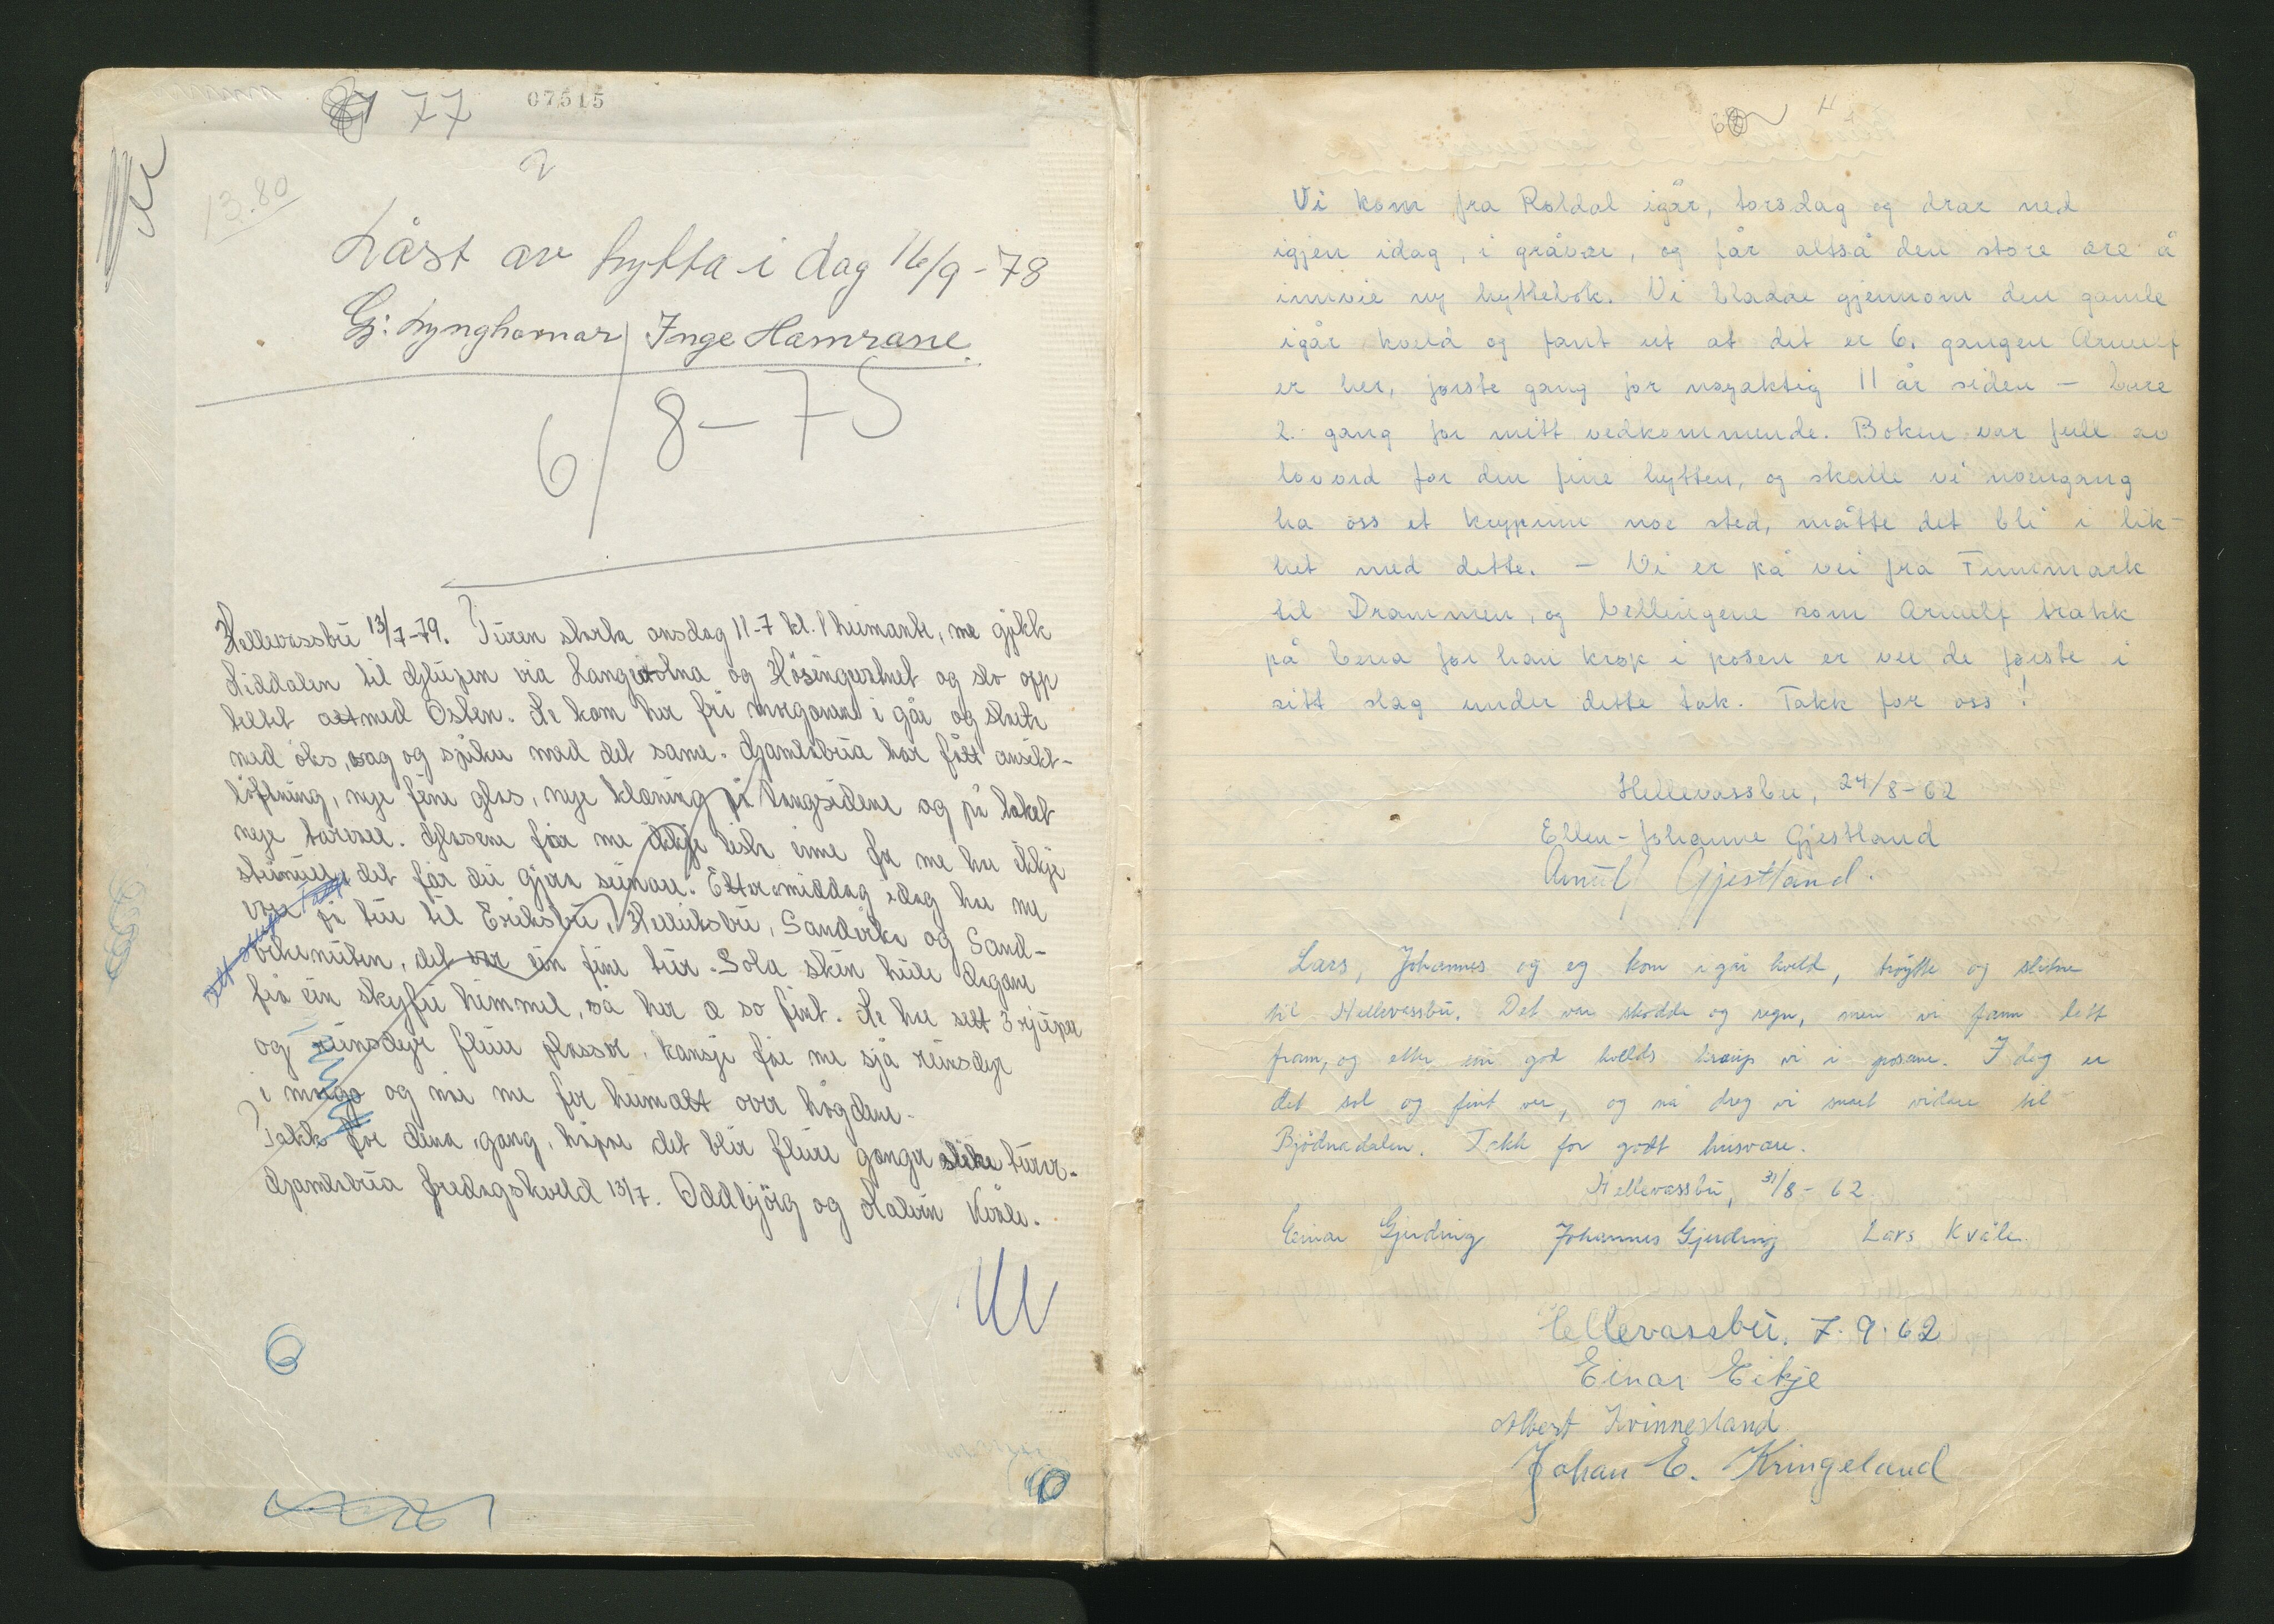 77
07515
13.80
Låst av hytta i dag 16/9-78
Gj: Lynghamar / Inge Hamrane
6/8-75
Hellevassbu 13/7-79. Turen starta onsdag 11-7 kl. 1 heimante, me gjikk
Kiddalen til djupen via Langavotna og Kösingvatnet og slo opp
teltet attmed Osten. Me kom her frå morgonen i går og
med öks, sag og med det same. Gjamlabua har fått ansikt-
löftning, nye fine glas, nye klæning på langsidene og på taket
nye torvol. Glasene får me ikkje inne for me har ikkje
det får du gjera seinare. Ettermiddag idag har me
vore på tur til Eriksbu, Helliksbu, Sandvika og Sand-
vikenuten, det var ein fine tur. Sola skin heile dagane
frå ein skyfri himmel, så her æ so fint. Me har sett 3 rjuper
og reinsdyr fleire plasser, kansje får me sjå reinsdyr
i morgo og når me fer heimatt over högdene.
Takk for dena gang, håpar det blir fleire gonger slike turer.
Gjamlabua fredagskveld 13/7. Oddbjörg og Kvåle.
6
Vi kom fra Røldal igår, torsdag og drar ned
igjen idag, i gråvær, og får altså den store ære å
innvie ny hyttebok. Vi bladde gjennom den gamle
igår kveld og fant ut at det er 6. gangen Arnulf
er her, første gang for nøyaktig 11 år siden – bare
2. gang for mitt vedkommende. Boken var full av
lovord for den fine hytten, og skulle vi noengang
ha oss et krypinn noe sted, måtte det bli i lik-
het med dette. – Vi er på vei fra Finnmark
til Drammen, og bellingene som Arnulf trakk
på bena før han krøp i posen er vel de første i
sitt slag under dette tak. Takk for oss!
Hellevassbu, 24/8-62
Ellen-Johanne Gjestland
Arnulf Gjestland.
Lars, Johannes og eg kom i går kveld, trøytte og slitne
til Hellevassbu. Det var skodda og regn, men vi fann lett
fram, og etter ein god kvelds kraup vi i posane. I dag er
det sol og fint ver, og nå dreg vi snart vidare til
Bjödnadalen. Takk for godt husvære.
Hellevassbu, 31/8-62.
Einar Gjerding Johannes Gjerding Lars Kvåle.
Hellevassbu, 7.9.62
Einar Eikje
Albert Kvinnesland
Johan E. Kringeland